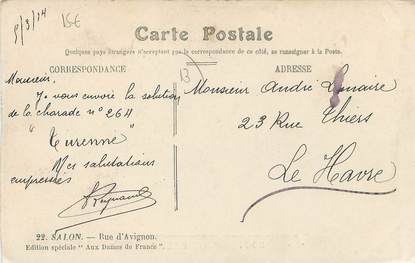 5/3/14
15€
Carte Postale
Quelques pays étrangers n'acceptent pas la correspondance de ce côté, se renseigner à la Poste.
CORRESPONDANCE
Monsieur,
Je vous envoie la solution
de la charade n° 264
"Turenne"
Mes salutations
empressées
22. SALON. — Rue d'Avignon.
Edition spéciale "Aux Dames de France".
ADRESSE
13
Monsieur André Lemaire
23 Rue Thiers
Le Havre